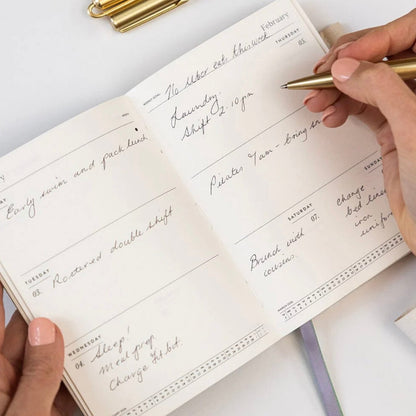 Early swim and pack lunch
TUESDAY
03.
Rostered double shift
WEDNESDAY
04.
Sleep!
Meal prep
Change Fitbit
February
THURSDAY
05.
No Uber eats this week
Laundry.
Shift 2-10pm
Pilates 7am - bring
SATURDAY
07.
Brunch with
cousins.
SUNDAY
Change
bed linen
iron
uniform